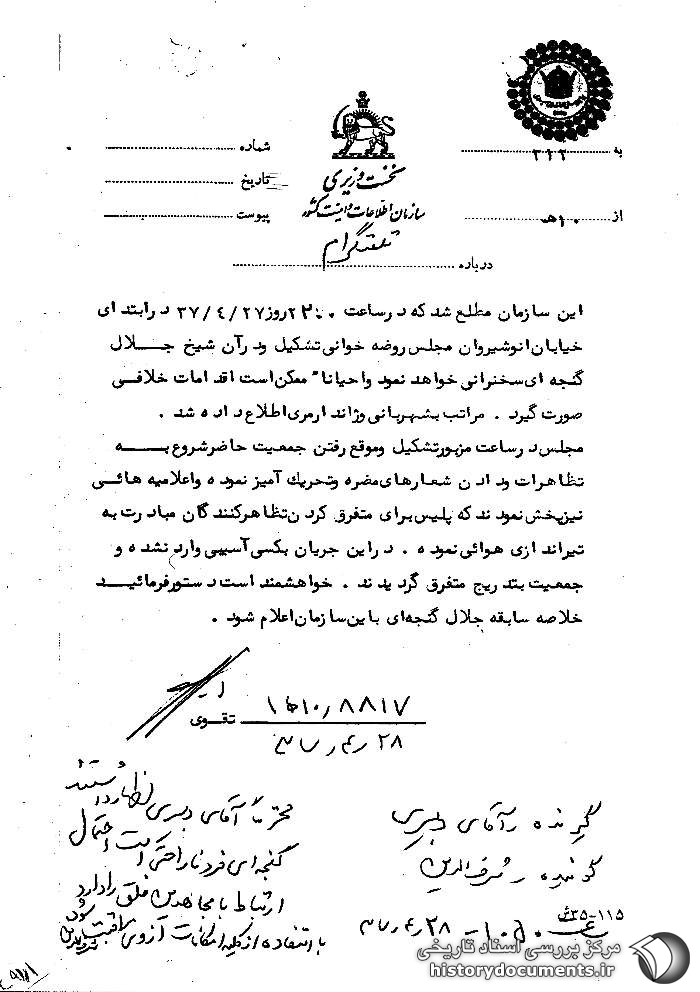 به ۳۱۲
از ۱۰ هـ
نخست وزیری
سازمان اطلاعات و امنیت کشور
تلفنگرام
شماره
تاریخ
پیوست
درباره
این سازمان مطلع شد که در ساعت ۲۲۰۰ روز ۳۷/۴/۲۷ در ابتدای
خیابان انوشیروان مجلس روضه خوانی تشکیل و در آن شیخ جلال
گنجه ای سخنرانی خواهد نمود و احیاناً ممکن است اقدامات خلافی
صورت گیرد . مراتب بشهربانی و ژاندارمری اطلاع داده شد .
مجلس در ساعت مزبور تشکیل و موقع رفتن جمعیت حاضر شروع به
تظاهرات و دادن شعارهای مضره و تحریک آمیز نموده و اعلامیه هائی
نیز پخش نمودند که پلیس برای متفرق کردن تظاهرکنندگان مبادرت به
تیراندازی هوائی نموده . در این جریان بکسی آسیبی وارد نشده و
جمعیت بتدریج متفرق گردیدند . خواهشمند است دستور فرمائید
خلاصه سابقه جلال گنجه‌ای باین سازمان اعلام شود .
تقوی
۲۸ر۴ر۳۷
گیرنده ر آقای دبیری
گوینده ر شرف الدین
۳۵-۱۱۵
۲۸ر۴ر۳۷
محترماً آقای دبیری اظهار داشتند
گنجه ای فرد ناراحتی است احتمال
ارتباط با مجاهدین خلق را دارد
با استفاده از کلیه امکانات از وی مراقبت شود
مرکز بررسی اسناد تاریخی
historydocuments.ir